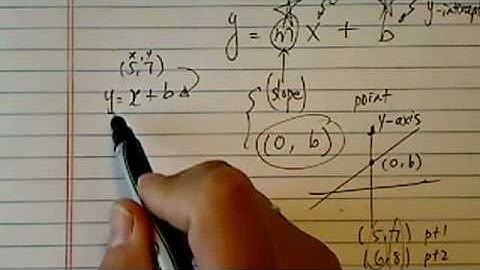 y = m x + b y-intercept
x y
(5,7)
y = x + b
(slope)
(0, b)
point
y-axis
(0,b)
(5,7) pt1
(6,8) pt2